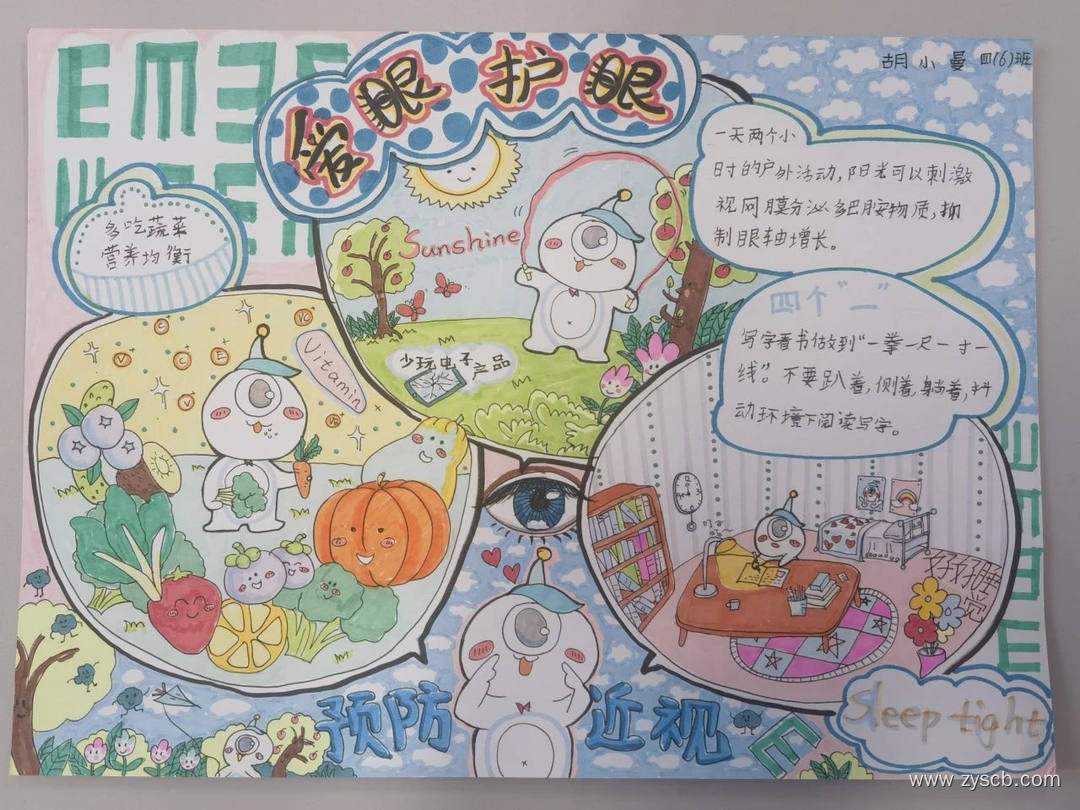 EMƎE
爱眼护眼
胡小曼 四(6)班
多吃蔬菜
营养均衡
Sunshine
少玩电子产品
一天两个小
时的户外活动,阳光可以刺激
视网膜分泌多巴胺物质,抑
制眼轴增长。
四个"一"
写字看书做到"一拳一尺一寸一
线"。不要趴着,侧着,躺着,抖
动环境下阅读写字。
Vitamin
V
C
C
E
V
好好睡觉
Sleep tight
预防近视
E
www.zyscb.com